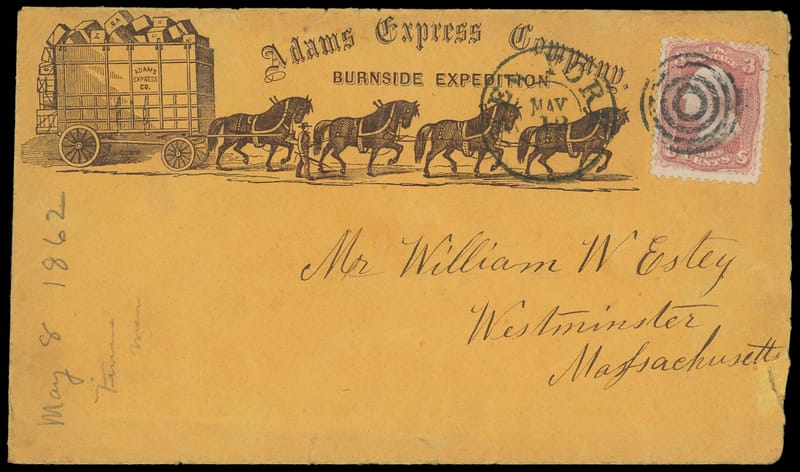 Adams Express Company,
BURNSIDE EXPEDITION
ADAMS
EXPRESS
CO.
YORK
MAY
U.S.
3
3
CENTS
Mr William W Estey
Westminster
Massachusetts
May 8 1862